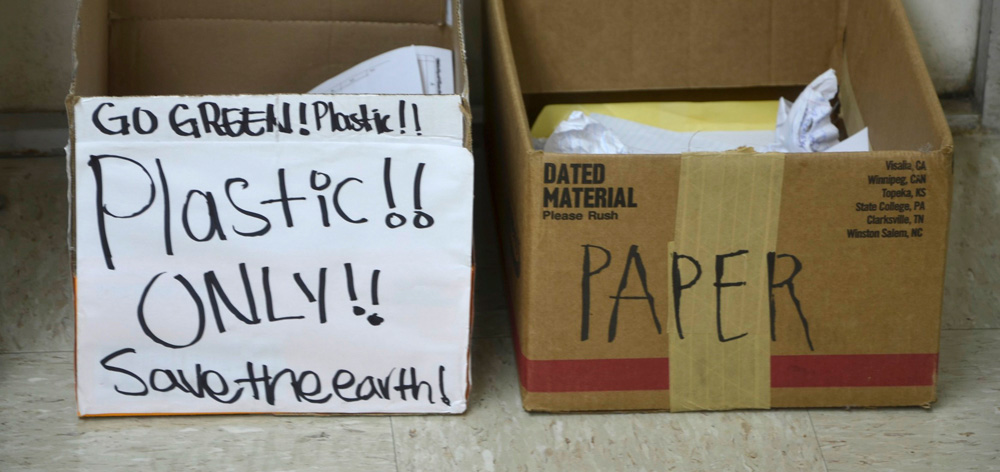 GO GREEN! Plastic!!
Plastic!!
ONLY!!
Save the earth!
DATED
MATERIAL
Please Rush
Visalia, CA
Winnipeg, CAN
Topeka, KS
State College, PA
Clarksville, TN
Winston Salem, NC
PAPER